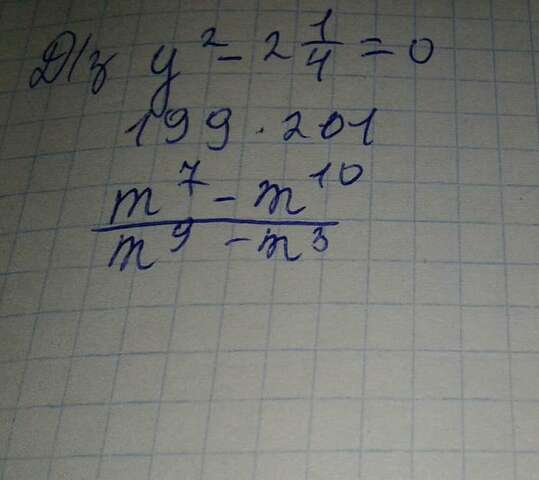 Д/з y² - 2 1/4 = 0
199 · 201
m⁷ - m¹⁰
m⁹ - m³